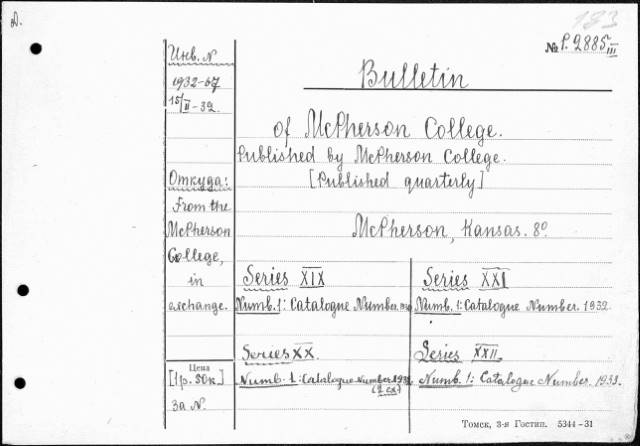 D.
183
№ P. 2885 III
Инв. N
1932-67
15/II-32.
Откуда:
From the
McPherson
College,
in
exchange.
Цена
[1р. 50к.]
За N.
Bulletin
of McPherson College.
Published by McPherson College.
[Published quarterly]
McPherson, Kansas. 8º.
Series XIX
Numb. 1: Catalogue Number.
Series XX.
Numb. 1: Catalogue Number
(2 ex)
Series XXI
Numb. 1: Catalogue Number. 1932.
Series XXII.
Numb. 1: Catalogue Number. 1933.
Томск, 3-я Гостип. 5344-31